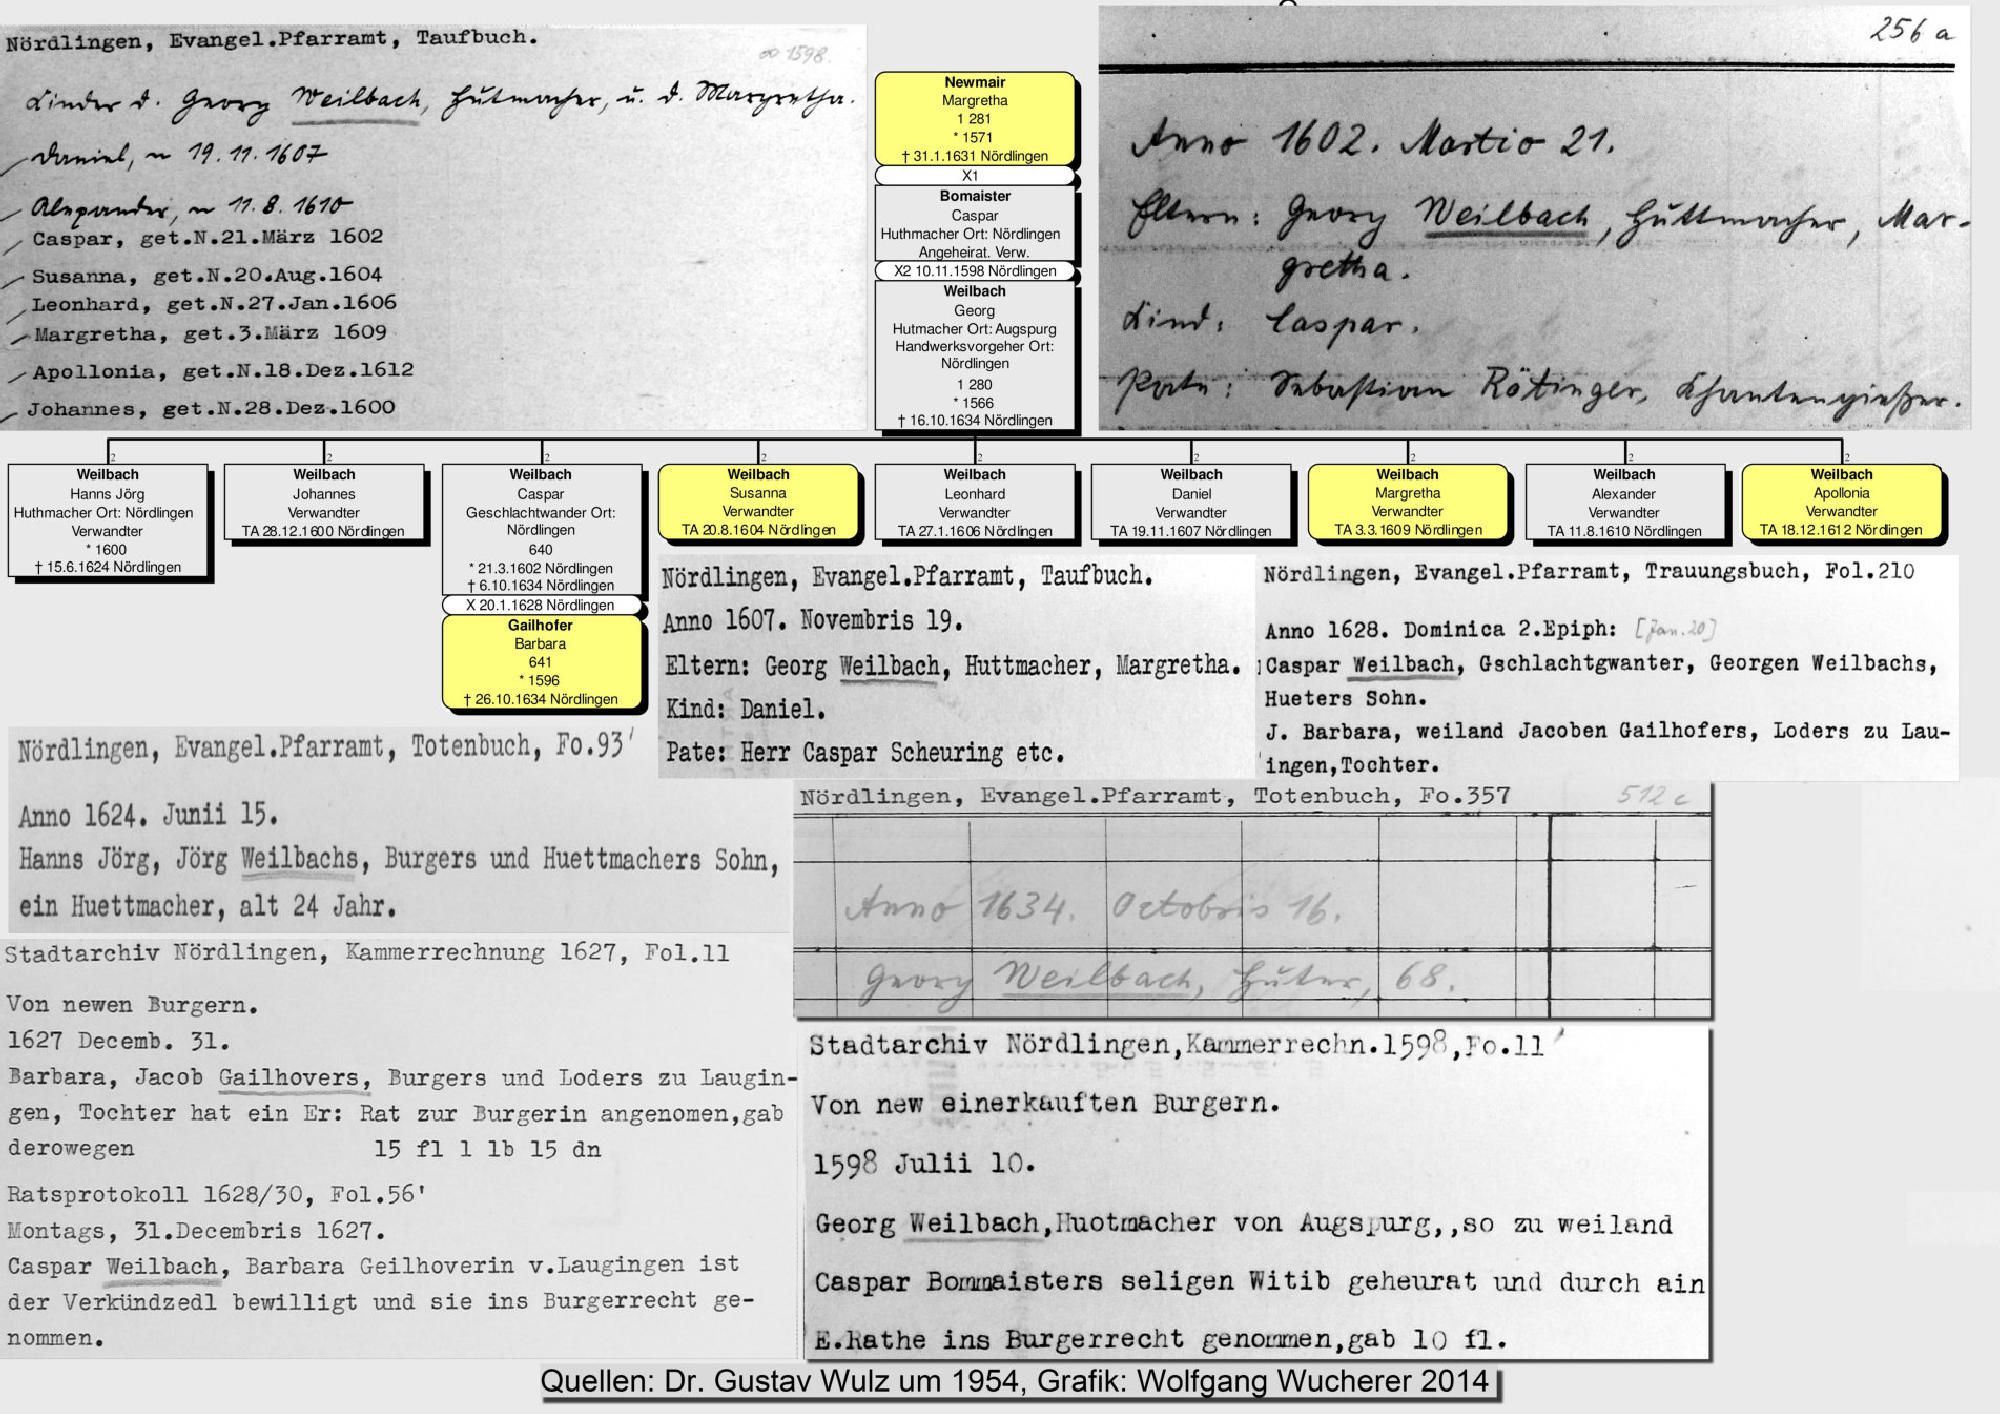 Nördlingen, Evangel.Pfarramt, Taufbuch.
oo 1598.
Kinder d. Georg Weilbach, Hütmacher, u. d. Margretha.
Daniel, ~ 19.11.1607
Alexander, ~ 11.8.1610
Caspar, get.N.21.März 1602
Susanna, get.N.20.Aug.1604
Leonhard, get.N.27.Jan.1606
Margretha, get.3.März 1609
Apollonia, get.N.18.Dez.1612
Johannes, get.N.28.Dez.1600
Newmair
Margretha
1 281
* 1571
† 31.1.1631 Nördlingen
X1
Bomaister
Caspar
Huthmacher Ort: Nördlingen
Angeheirat. Verw.
X2 10.11.1598 Nördlingen
Weilbach
Georg
Hutmacher Ort: Augspurg
Handwerksvorgeher Ort:
Nördlingen
1 280
* 1566
† 16.10.1634 Nördlingen
256 a
Anno 1602. Martio 21.
Eltern: Georg Weilbach, Huttmacher, Mar-
gretha.
Kind: Caspar.
Pate: Sebastian Rötinger, Khantengießer.
2
Weilbach
Hanns Jörg
Huthmacher Ort: Nördlingen
Verwandter
* 1600
† 15.6.1624 Nördlingen
2
Weilbach
Johannes
Verwandter
TA 28.12.1600 Nördlingen
2
Weilbach
Caspar
Geschlachtwander Ort:
Nördlingen
640
* 21.3.1602 Nördlingen
† 6.10.1634 Nördlingen
X 20.1.1628 Nördlingen
Gailhofer
Barbara
641
* 1596
† 26.10.1634 Nördlingen
2
Weilbach
Susanna
Verwandter
TA 20.8.1604 Nördlingen
2
Weilbach
Leonhard
Verwandter
TA 27.1.1606 Nördlingen
2
Weilbach
Daniel
Verwandter
TA 19.11.1607 Nördlingen
2
Weilbach
Margretha
Verwandter
TA 3.3.1609 Nördlingen
2
Weilbach
Alexander
Verwandter
TA 11.8.1610 Nördlingen
2
Weilbach
Apollonia
Verwandter
TA 18.12.1612 Nördlingen
Nördlingen, Evangel.Pfarramt, Taufbuch.
Anno 1607. Novembris 19.
Eltern: Georg Weilbach, Huttmacher, Margretha.
Kind: Daniel.
Pate: Herr Caspar Scheuring etc.
Nördlingen, Evangel.Pfarramt, Trauungsbuch, Fol.210
Anno 1628. Dominica 2.Epiph: [Jan.20]
Caspar Weilbach, Gschlachtgwanter, Georgen Weilbachs,
Hueters Sohn.
J. Barbara, weiland Jacoben Gailhofers, Loders zu Lau-
ingen,Tochter.
Nördlingen, Evangel.Pfarramt, Totenbuch, Fo.93'
Anno 1624. Junii 15.
Hanns Jörg, Jörg Weilbachs, Burgers und Huettmachers Sohn,
ein Huettmacher, alt 24 Jahr.
Nördlingen, Evangel.Pfarramt, Totenbuch, Fo.357
512 c
Anno 1634. Octobris 16.
Georg Weilbach, Hüter, 68.
Stadtarchiv Nördlingen, Kammerrechnung 1627, Fol.11
Von newen Burgern.
1627 Decemb. 31.
Barbara, Jacob Gailhovers, Burgers und Loders zu Laugin-
gen, Tochter hat ein Er: Rat zur Burgerin angenomen,gab
derowegen 15 fl 1 lb 15 dn
Ratsprotokoll 1628/30, Fol.56'
Montags, 31.Decembris 1627.
Caspar Weilbach, Barbara Geilhoverin v.Laugingen ist
der Verkündzedl bewilligt und sie ins Burgerrecht ge-
nommen.
Stadtarchiv Nördlingen,Kammerrechn.1598,Fo.11'
Von new einerkauften Burgern.
1598 Julii 10.
Georg Weilbach,Huotmacher von Augspurg,,so zu weiland
Caspar Bommaisters seligen Witib geheurat und durch ain
E.Rathe ins Burgerrecht genommen,gab 10 fl.
Quellen: Dr. Gustav Wulz um 1954, Grafik: Wolfgang Wucherer 2014